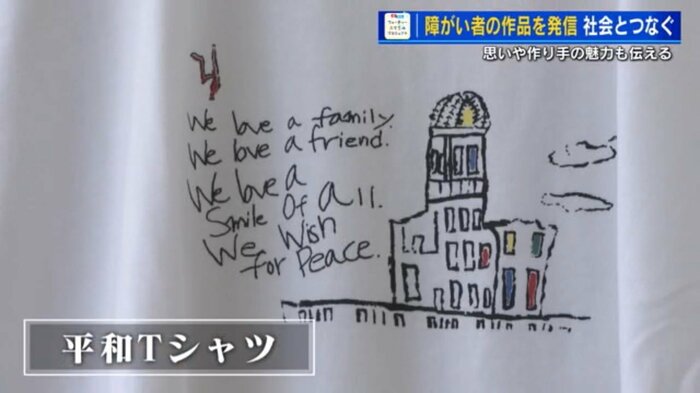 障がい者の作品を発信 社会とつなぐ
思いや作り手の魅力も伝える
We love a family.
We love a friend.
We love a
Smile Of All.
We Wish
for Peace.
平和Tシャツ